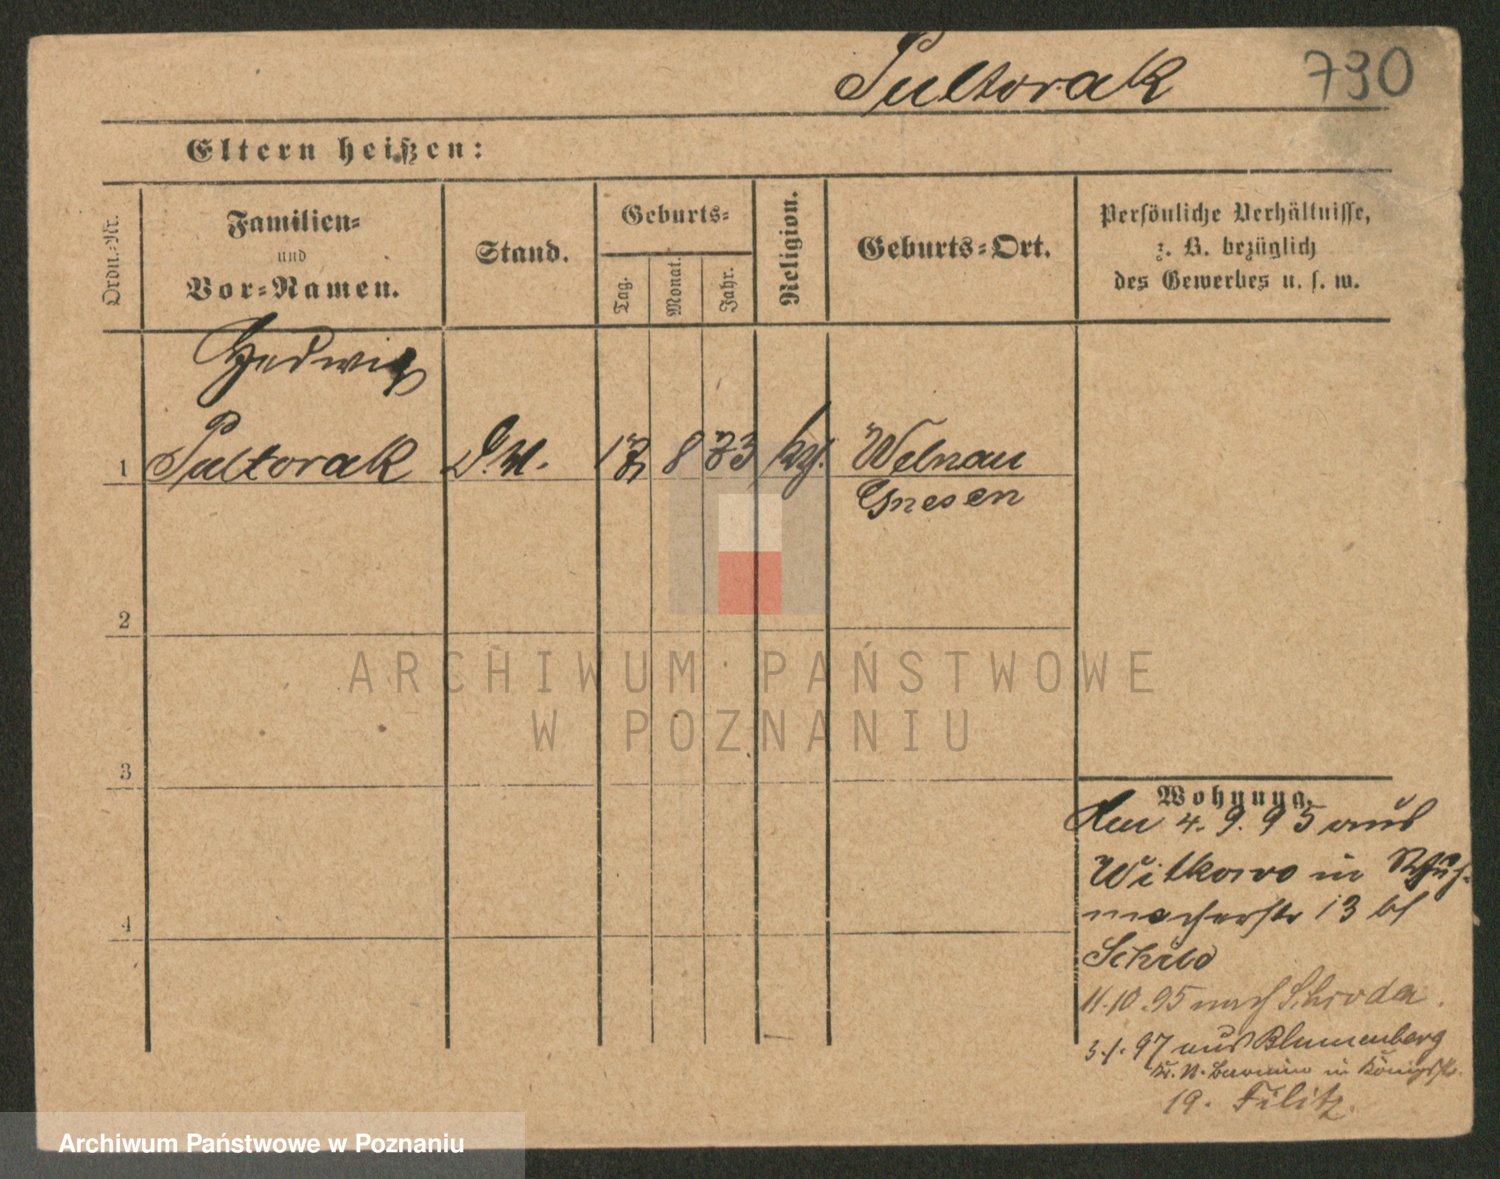 Pultorak 790
Eltern heißen:
Ordn.-Nr.
Familien-
und
Vor-Namen.
Stand.
Geburts-
Tag.
Monat.
Jahr.
Religion.
Geburts-Ort.
Persönliche Verhältnisse,
z. B. bezüglich
des Gewerbes u. s. w.
Hedwig
1 Pultorak D.M. 17 8 73 kg. Welnau
Gnesen
2
3
4
Wohnung.
Am 4. 9. 95 aus
Witkowo in Schuh-
macherstr 13 bf
Schild
11.10.95 nach Schroda.
3.1.97 aus Blumenberg
Kr. N. Barnim in Königstr.
19. Filitz.
ARCHIWUM PAŃSTWOWE
W POZNANIU
Archiwum Państwowe w Poznaniu